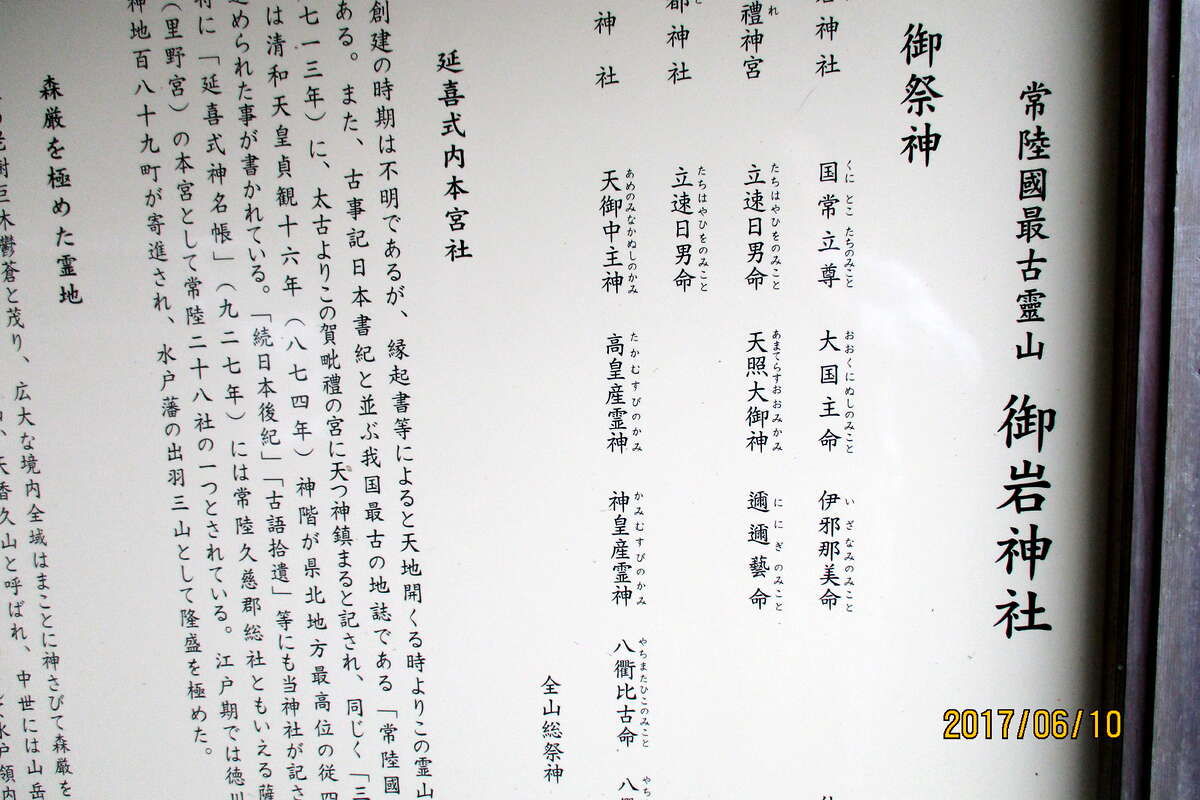 常陸國最古靈山 御岩神社
御祭神
神社 国常立尊 大国主命 伊邪那美命
くにとこたちのみこと おおくにぬしのみこと いざなみのみこと
禮神宮 立速日男命 天照大御神 邇邇藝命
れ たちはやひをのみこと あまてらすおおみかみ ににぎのみこと
都神社 立速日男命
たちはやひをのみこと
神社 天御中主神 高皇産霊神 神皇産霊神 八衢比古命 八
あめのみなかぬしのかみ たかむすびのかみ かみむすびのかみ やちまたひこのみこと やち
全山総祭神
延喜式内本宮社
創建の時期は不明であるが、縁起書等によると天地開くる時よりこの霊山
ある。また、古事記日本書紀と並ぶ我国最古の地誌である「常陸國
七一三年）に、太古よりこの賀毗禮の宮に天つ神鎮まると記され、同じく「三
は清和天皇貞観十六年（八七四年）神階が県北地方最高位の従四
められた事が書かれている。「続日本後紀」「古語拾遺」等にも当神社が記さ
特に「延喜式神名帳」（九二七年）には常陸久慈郡総社ともいえる薩
（里野宮）の本宮として常陸二十八社の一つとされている。江戸期では徳川
神地百八十九町が寄進され、水戸藩の出羽三山として隆盛を極めた。
森厳を極めた霊地
老樹巨木鬱蒼と茂り、広大な境内全域はまことに神さびて森厳を
天香久山と呼ばれ、中世には山岳
水戸領内
2017/06/10